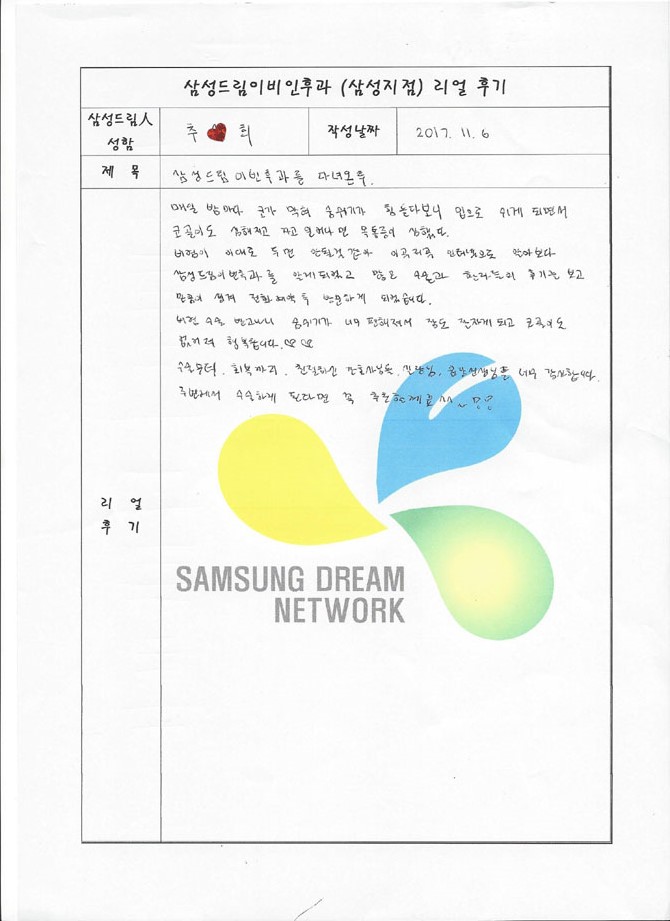 삼성드림이비인후과 (삼성지점) 리얼 후기
삼성드림人
성함
추 희
작성날짜
2017. 11. 6
제 목
삼성드림이빈후과를 다녀온후.
매일 밤마다 코가 막혀 숨쉬기가 힘들다보니 입으로 쉬게 되면서
코골이도 심해지고 자고 일어나면 목통증이 심했다.
이대로 두면 안될것 같아 이곳저곳 인터넷으로 알아보다
삼성드림이빈후과를 알게되었고 많은 수술과 환자분들의 후기를 보고
믿음이 생겨 전화예약 후 방문하게 되었습니다.
비염 수술 받고나니 숨쉬기가 너무 편해져서 잠도 잘자게 되고 코골이도
없어져 행복합니다.♡♡
수술부터, 회복까지, 친절하신 간호사님들, 원장님, 너무 감사합니다.
주변에서 수술하게 된다면 꼭 추천할께요 ^^
리 얼
후 기
SAMSUNG DREAM
NETWORK